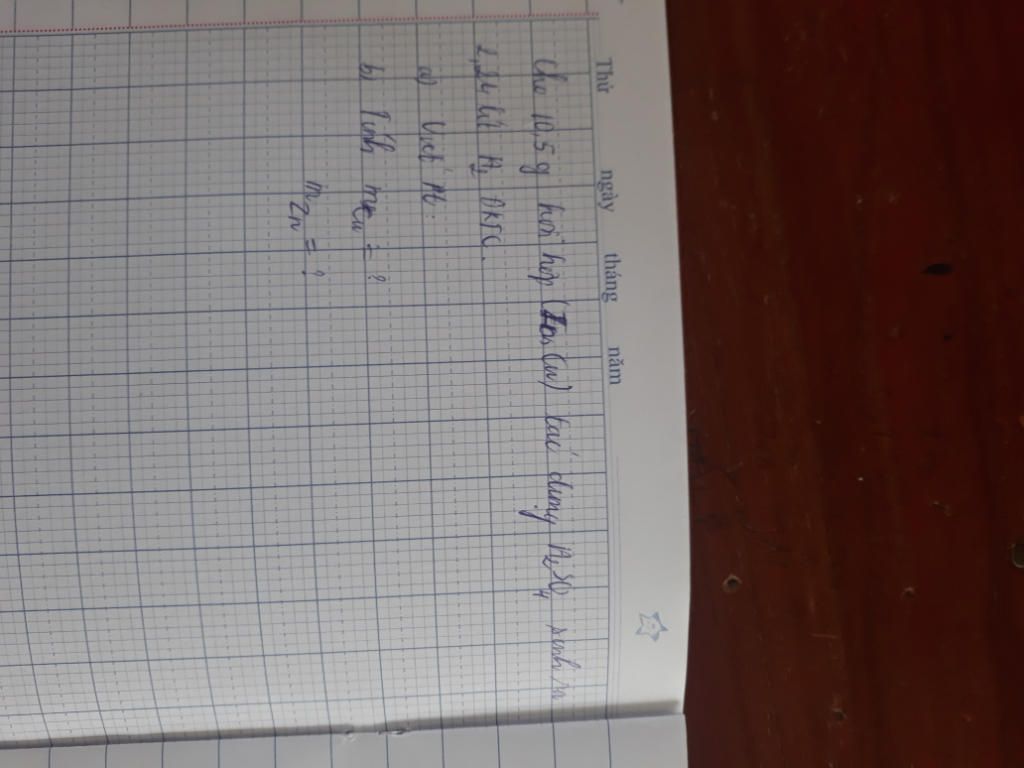 Thứ ngày tháng năm
Cho 10,5g hỗn hợp (Zn, Cu) tác dụng H2SO4 sinh ra
2,24 lít H2 ĐKTC.
a) Viết Pt.
b) Tính mCu = ?
mZn = ?